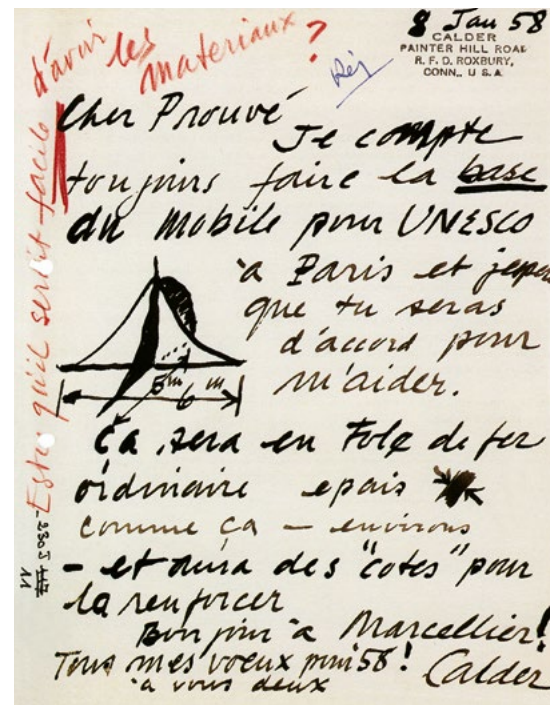 8 Jan 58
CALDER
PAINTER HILL ROAD
R. F. D. ROXBURY,
CONN., U S A
Est ce qu'il serait facile d'avoir les
materiaux ?
Cher Prouvé
Je compte
toujours faire la base
du mobile pour UNESCO
à Paris et j'espere
que tu seras
d'accord pour
m'aider.
5m 6m
Ça sera en Fole de fer
ordinaire epais
comme ça — environs
- et aura des "cotes" pour
la renforcer
Bonjour a Marcellier!
Tous mes voeux pour 58!
à vous deux
Calder